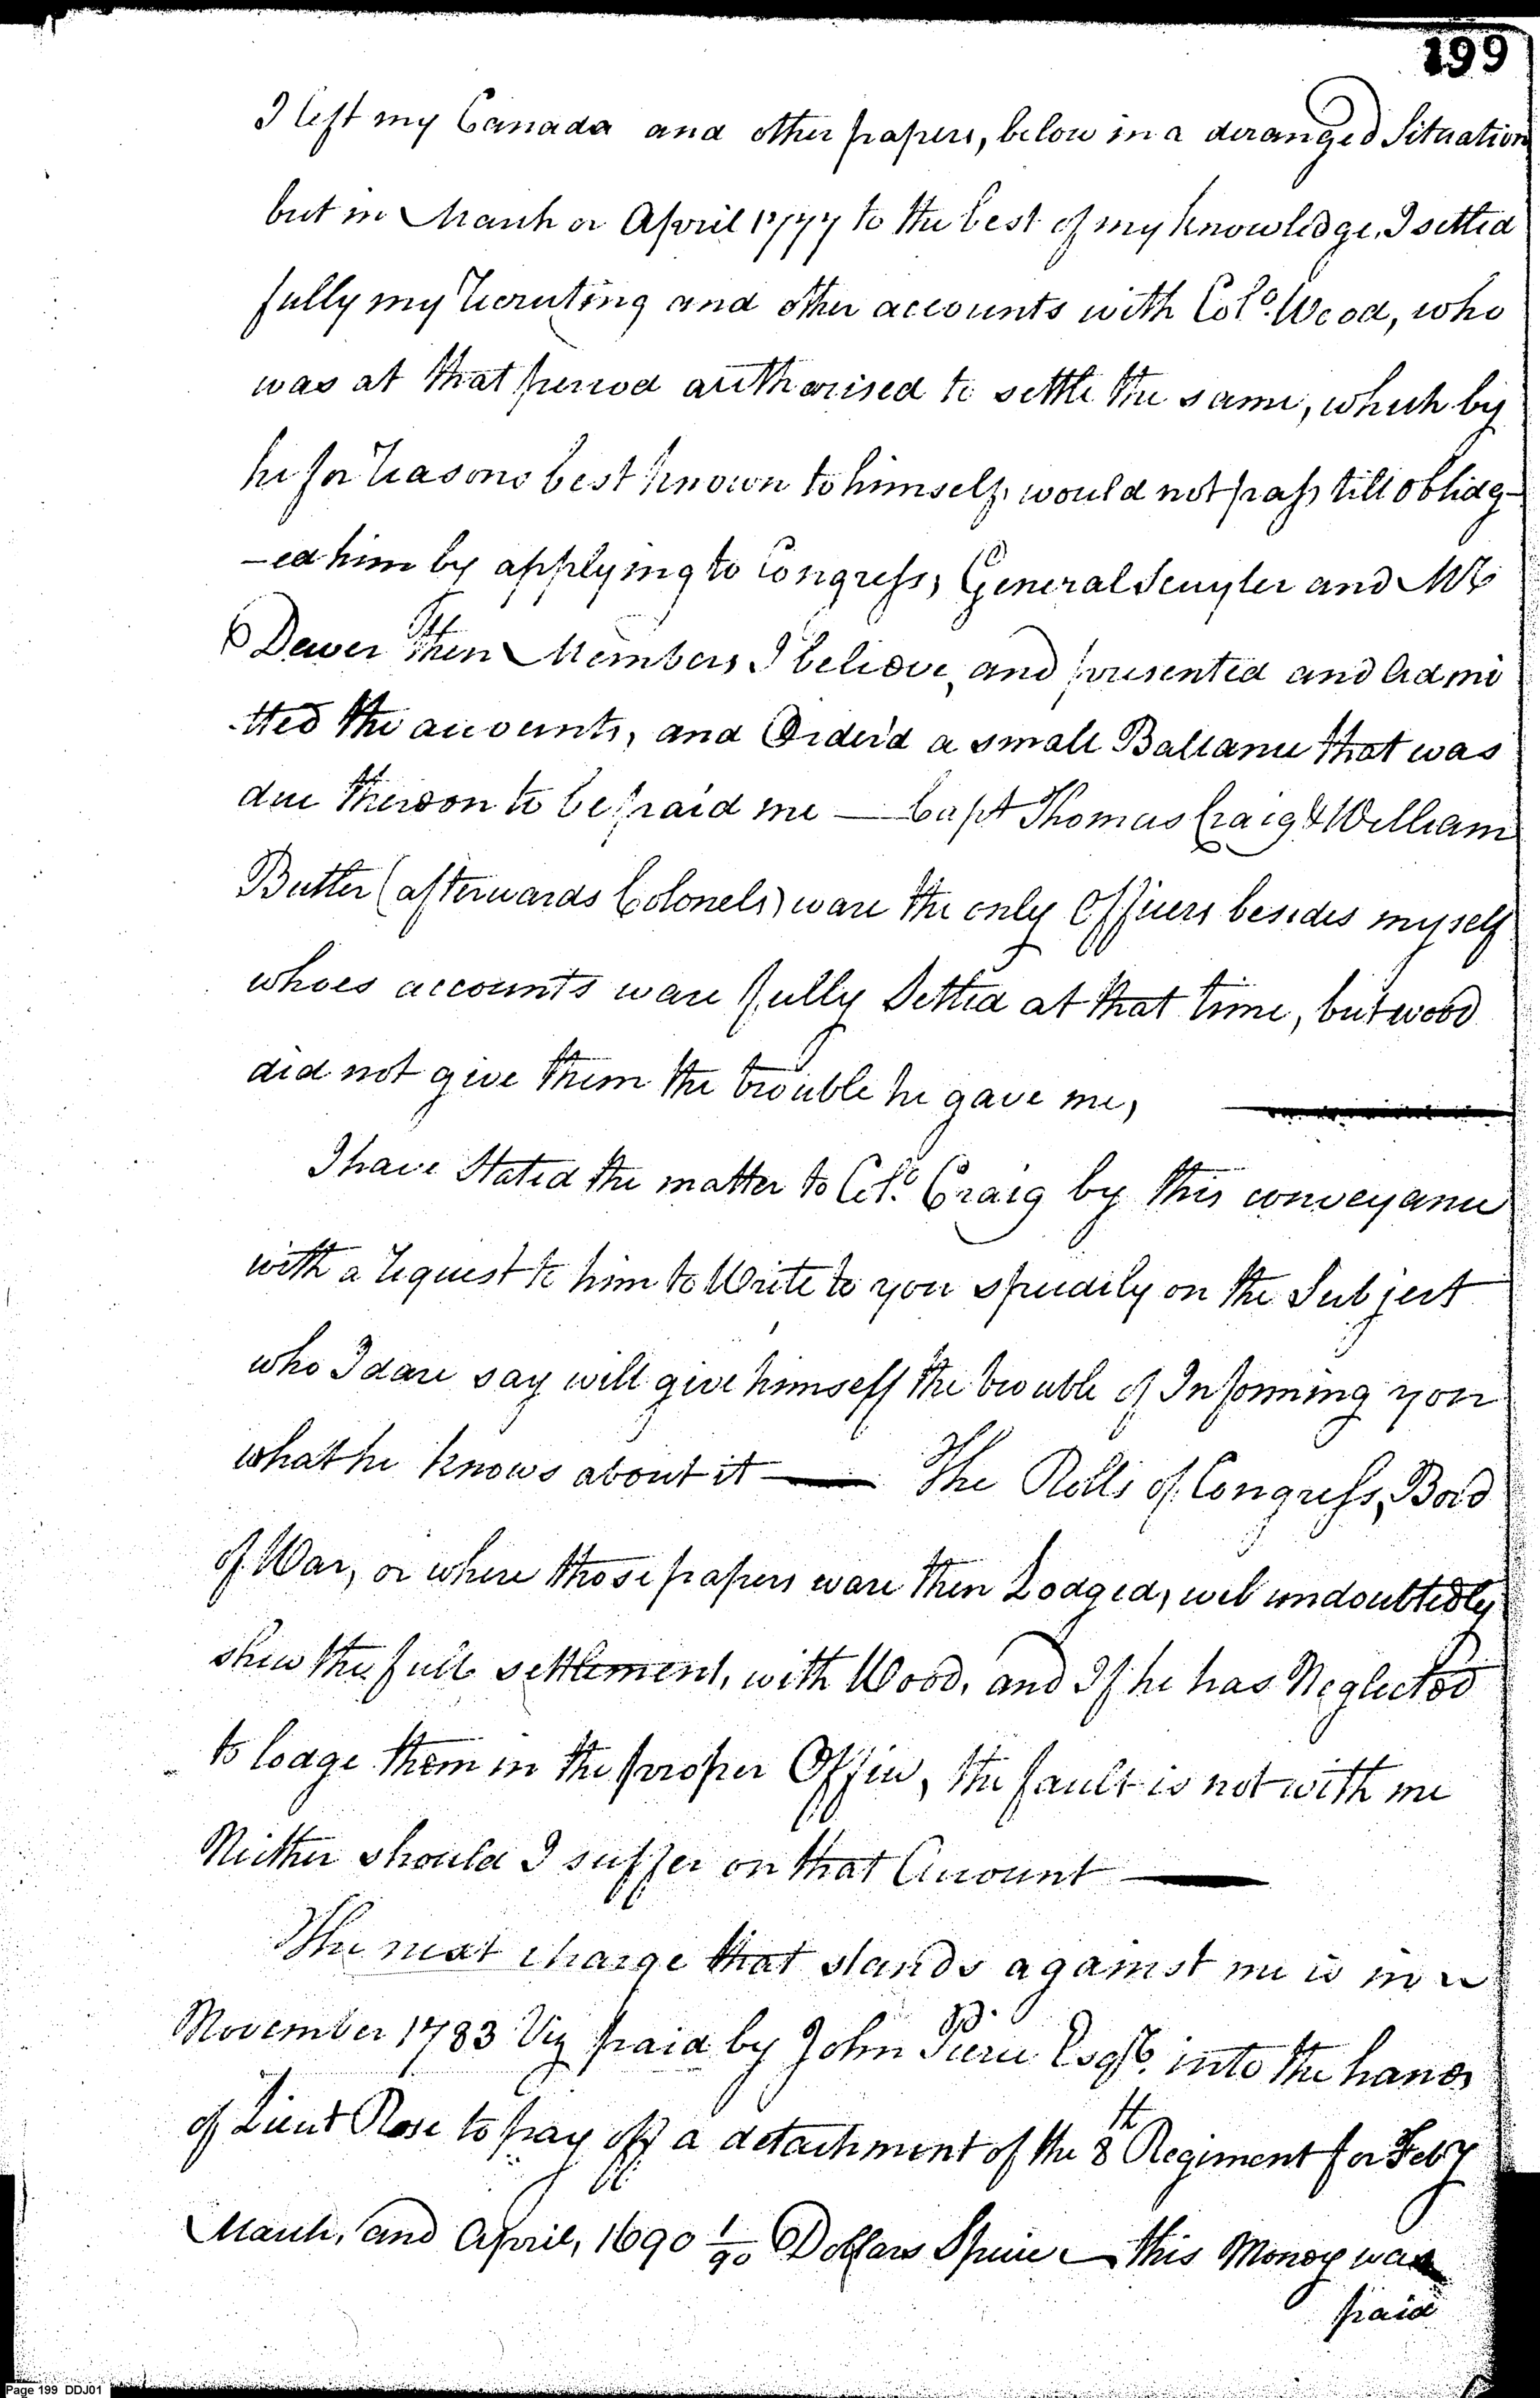 199
I left my Canada and other papers, below in a deranged Situation
but in March or April 1777 to the best of my knowledge, I settled
fully my Recruting and other accounts with Colo. Wood, who
was at that period authorised to settle the same, which by
he for Reasons best known to himself, would not pass till oblidg-
-ed him by applying to Congress, General Scuyler and Mr
Dewer then Members I believe, and presented and Admi
-tted the accounts, and Order'd a small Ballance that was
due thereon to be paid me — Capt Thomas Craig & William
Butler (afterwards Colonels) ware the only Officers besides myself
whoes accounts ware fully Settled at that time, but wood
did not give them the trouble he gave me,
I have Stated the matter to Colo. Craig by this conveyance
with a Request to him to Write to you speedily on the Subject
who I dare say will give himself the trouble of Informing you
what he knows about it — The Rolls of Congress, Bord
of War, or where those papers ware then Lodged, wil undoubtedly
shew the full settlement, with Wood, and If he has Neglected
to lodge them in the proper Office, the fault is not with me
Neither should I suffer on that Account —
The next charge that stands against me is in
November 1783 Viz paid by John Pierce Esqr. into the hands
of Lieut Rose to pay off a detachment of the 8th Regiment for Feby
March, and April, 1690 1/90 Dollars Specie — this Money was
paid
Page 199 DDJ01